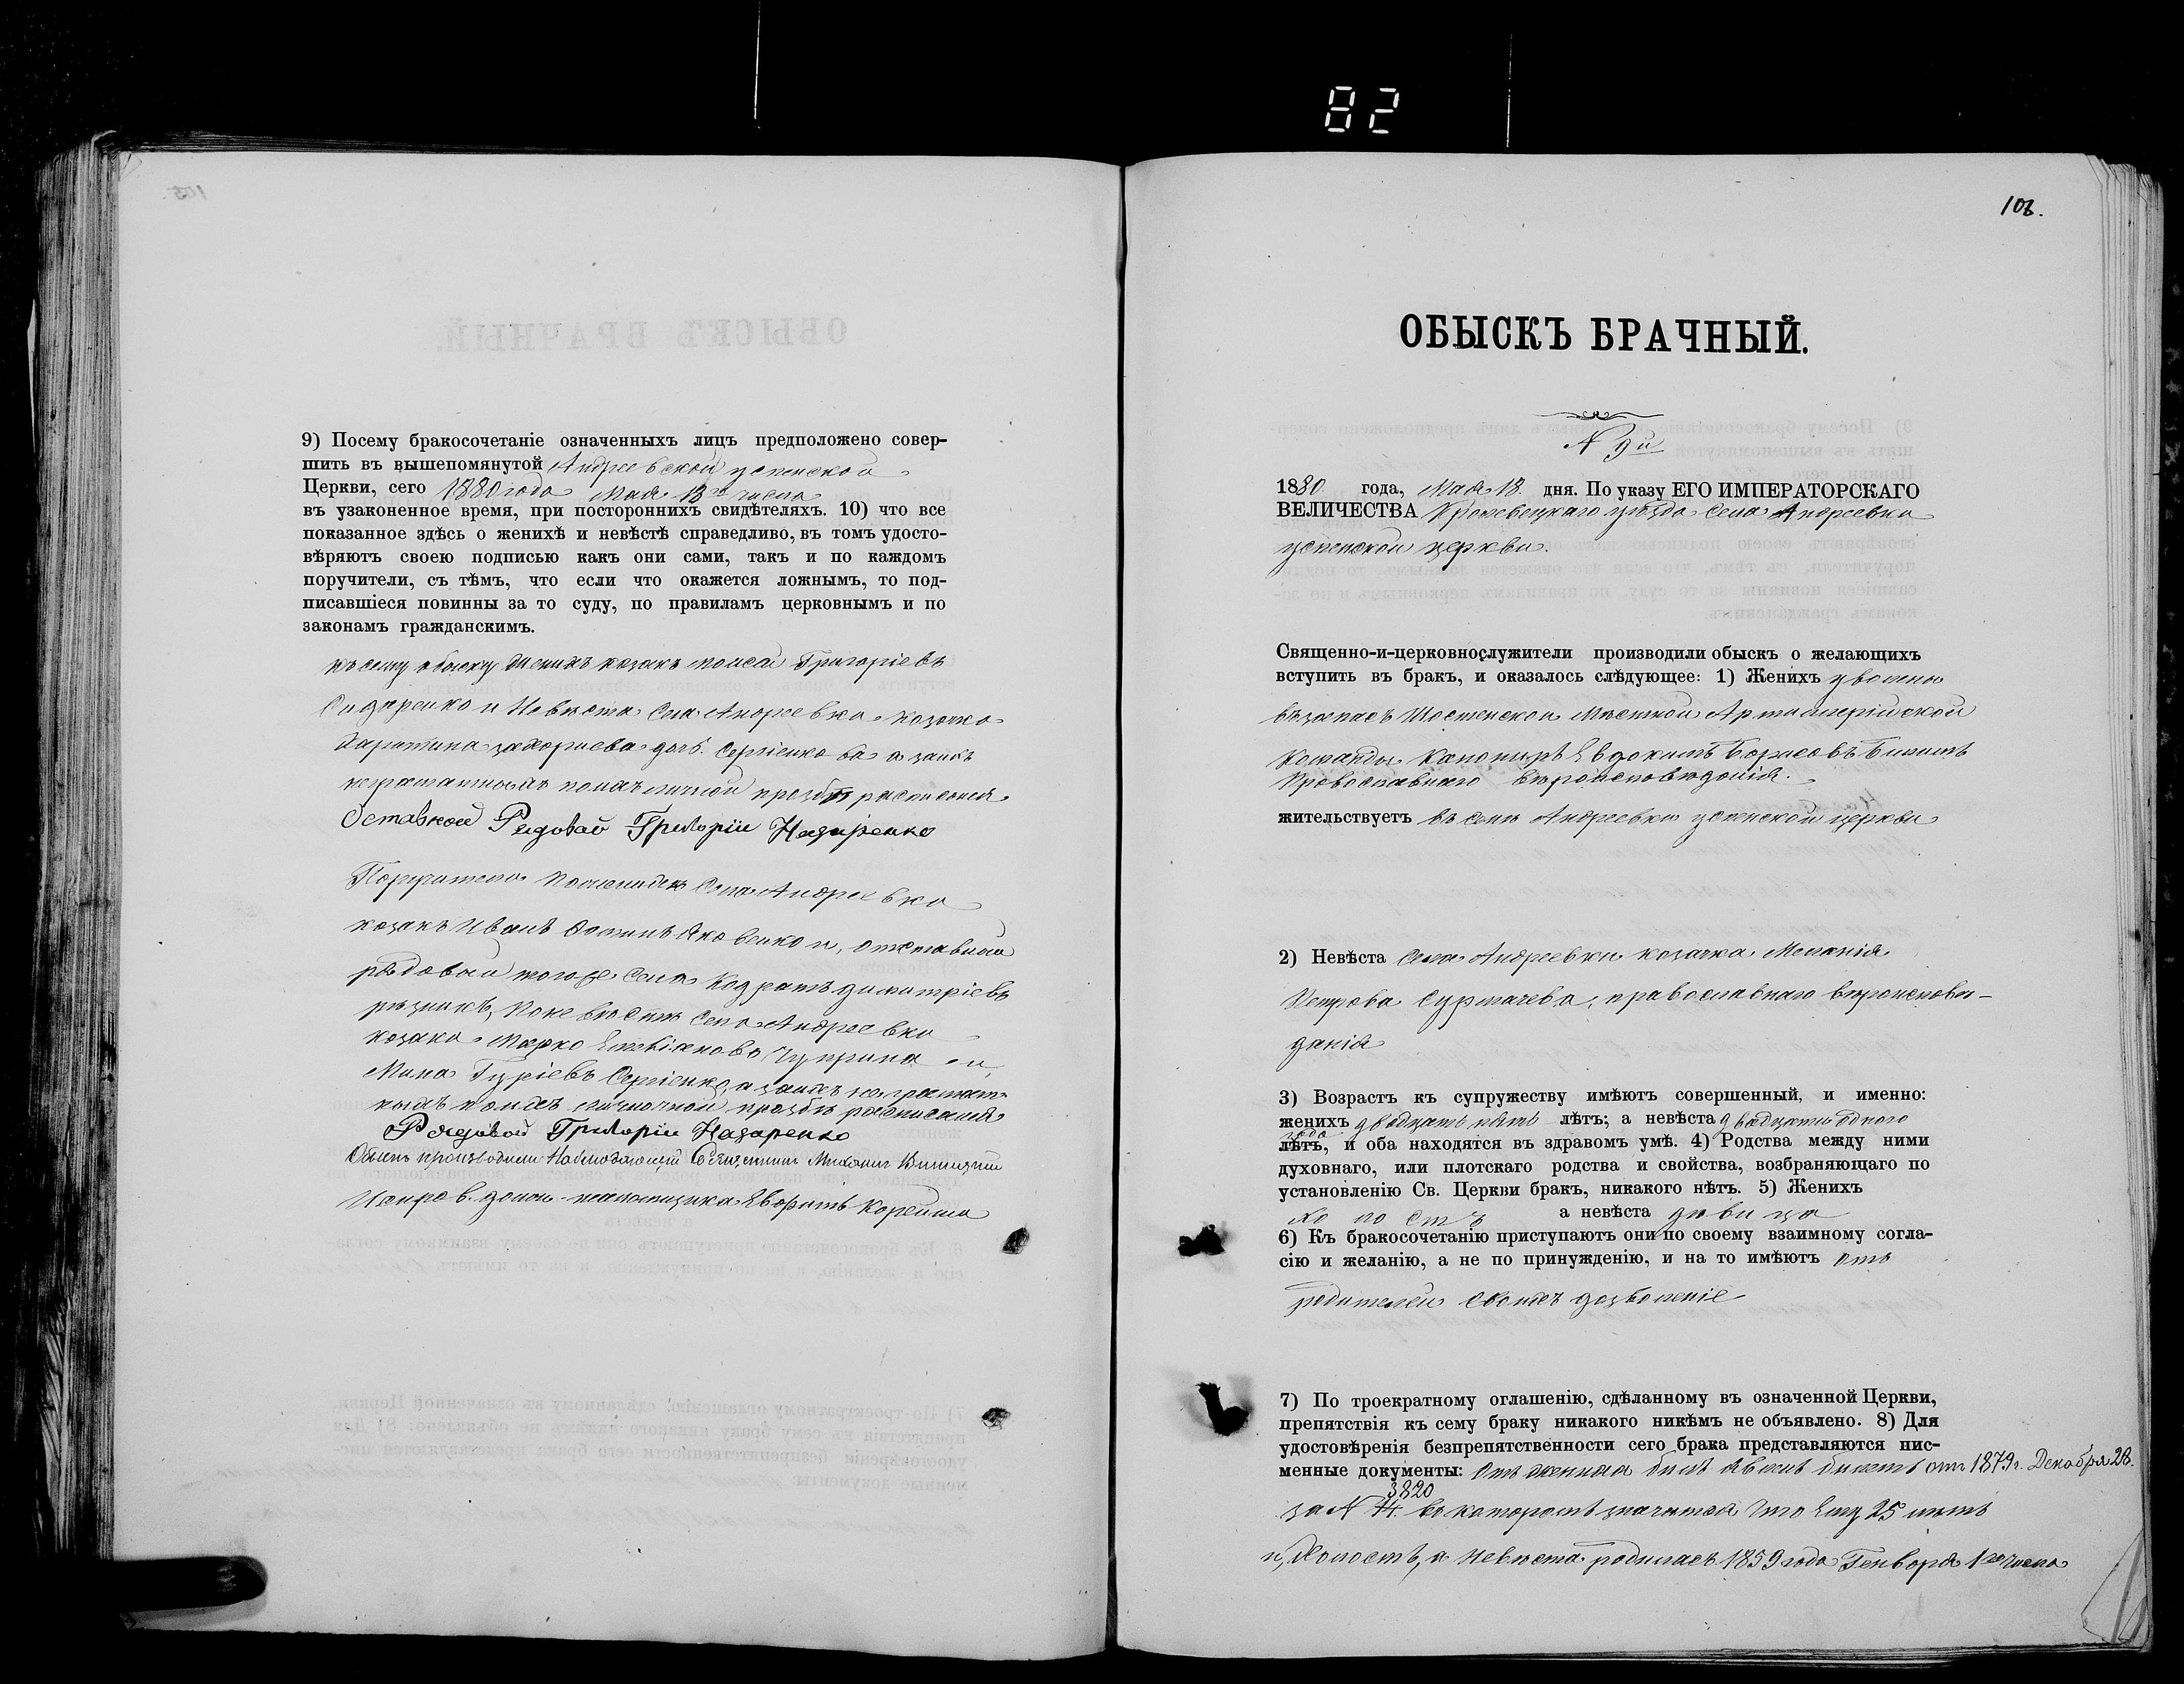 82
9) Посему бракосочетаніе означенныхъ лицъ предположено совер-
шить въ вышепомянутой Андреевской успенской
Церкви, сего 1880 года Мая 18го числа
въ узаконенное время, при постороннихъ свидѣтеляхъ. 10) что все
показанное здѣсь о женихѣ и невѣстѣ справедливо, въ томъ удосто-
вѣряютъ своею подписью какъ они сами, такъ и по каждомъ
поручители, съ тѣмъ, что если что окажется ложнымъ, то под-
писавшіеся повинны за то суду, по правиламъ церковнымъ и по
законамъ гражданскимъ.
къ сему обыску женихъ козакъ Григоріевъ
и Невѣста Села Андреевки козачка
дочь
неграмотныхъ по ихъ личной прозбѣ росписался
Рядовой Григорій Назаренко
Поручители По женихѣ Села Андреевки
козакъ Иванъ Яковенко и, отставной
рядовой того же Села Кодратъ Димитріевъ
По невѣстѣ Села Андреевки
козаки Марко Чуприна и
Мина Гуріевъ Сергіенко, а за ихъ неграмот-
ныхъ по ихъ личной прозбѣ росписался
Рядовой Григорій Назаренко
Обыскъ производили Священникъ Михаилъ
106.
ОБЫСКЪ БРАЧНЫЙ.
N 9й
1880 года, Мая 18 дня. По указу ЕГО ИМПЕРАТОРСКАГО
ВЕЛИЧЕСТВА Кролевецкаго уѣзда Села Андреевки
успенской церкви.
Священно-и-церковнослужители производили обыскъ о желающихъ
вступить въ бракъ, и оказалось слѣдующее: 1) Женихъ уволены
въ запасъ Шостенской Мѣстной Артилерійской
Команды Канониръ Евдокимъ Борисовъ
Православнаго вѣроисповѣданія.
жительствуетъ въ селѣ Андреевки успенской церкви
2) Невѣста Села Андреевки козачка Меланія
Петрова Сурмачева, православнаго вѣроисповѣ-
данія
3) Возрастъ къ супружеству имѣютъ совершенный, и именно:
женихъ двадцать пять лѣтъ; а невѣста двадцать одного
года
лѣтъ, и оба находятся въ здравомъ умѣ. 4) Родства между ними
духовнаго, или плотскаго родства и свойства, возбраняющаго по
установленію Св. Церкви бракъ, никакого нѣтъ. 5) Женихъ
холостъ а невѣста дѣвица
6) Къ бракосочетанію приступаютъ они по своему взаимному согла-
сію и желанію, а не по принужденію, и на то имѣютъ отъ
родителей своихъ дозволеніе
7) По троекратному оглашенію, сдѣланному въ означенной Церкви,
препятствія къ сему браку никакого никѣмъ не объявлено. 8) Для
удостовѣренія безпрепятственности сего брака представляются пис-
менные документы: Отъ жениха билетъ отъ 1879 г. Декабря 28.
3820
за N 4. въ которомъ значится что ему 25 лѣтъ
и, Холостъ, а Невѣста родилась 1859 года Генворя 1го числа